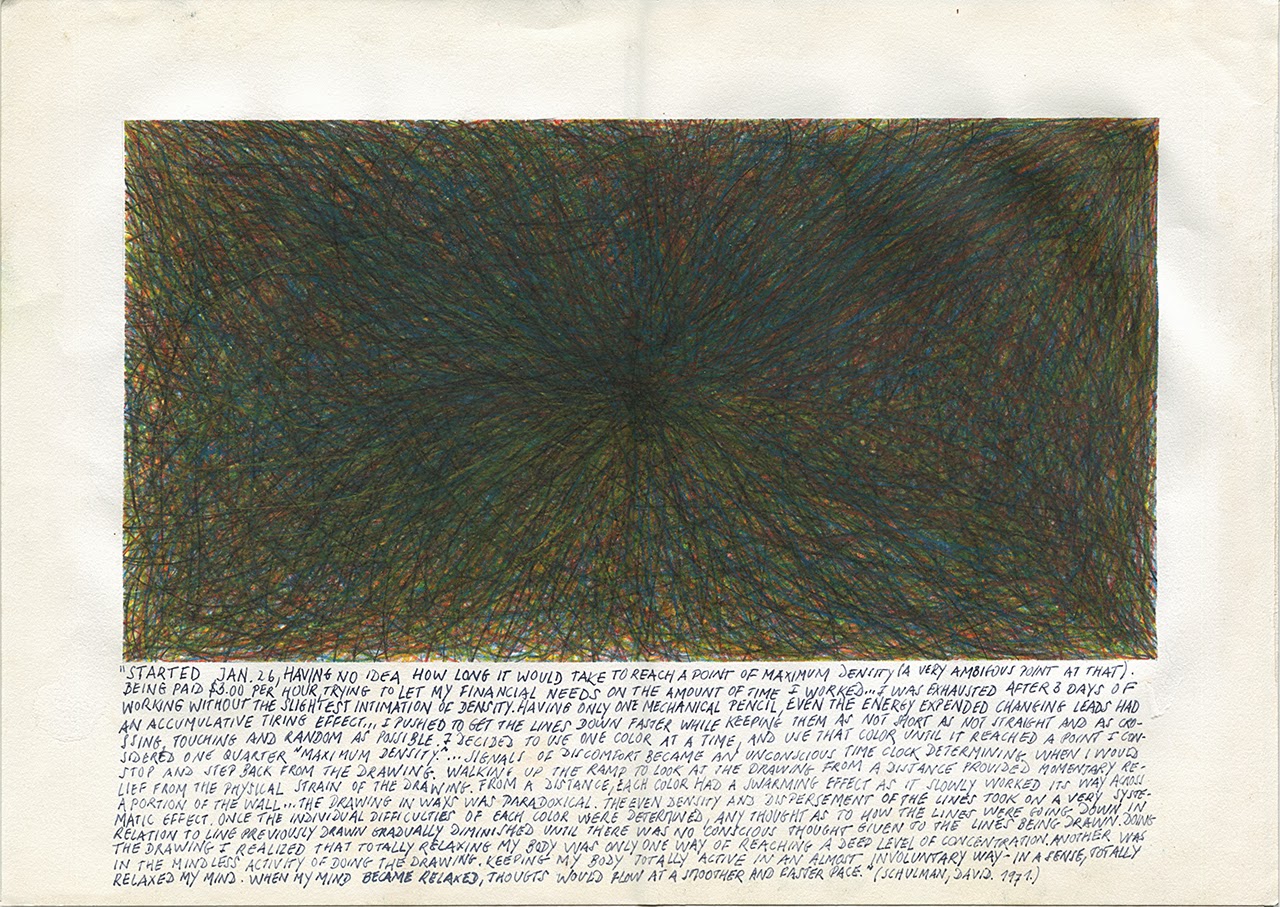 "STARTED JAN. 26, HAVING NO IDEA HOW LONG IT WOULD TAKE TO REACH A POINT OF MAXIMUM DENSITY (A VERY AMBIGOUS POINT AT THAT).
BEING PAID $3.00 PER HOUR, TRYING TO LET MY FINANCIAL NEEDS ON THE AMOUNT OF TIME I WORKED... I WAS EXHAUSTED AFTER 3 DAYS OF
WORKING WITHOUT THE SLIGHTEST INTIMATION OF DENSITY. HAVING ONLY ONE MECHANICAL PENCIL, EVEN THE ENERGY EXPENDED CHANGING LEADS HAD
AN ACCUMULATIVE TIRING EFFECT... I PUSHED TO GET THE LINES DOWN FASTER WHILE KEEPING THEM AS NOT SHORT AS NOT STRAIGHT AND AS CRO-
SSING, TOUCHING AND RANDOM AS POSSIBLE. I DECIDED TO USE ONE COLOR AT A TIME, AND USE THAT COLOR UNTIL IT REACHED A POINT I CON-
SIDERED ONE QUARTER "MAXIMUM DENSITY."... SIGNALS OF DISCOMFORT BECAME AN UNCONSCIOUS TIME CLOCK DETERMINING WHEN I WOULD
STOP AND STEP BACK FROM THE DRAWING. WALKING UP THE RAMP TO LOOK AT THE DRAWING FROM A DISTANCE PROVIDED MOMENTARY RE-
LIEF FROM THE PHYSICAL STRAIN OF THE DRAWING. FROM A DISTANCE, EACH COLOR HAD A SWARMING EFFECT AS IT SLOWLY WORKED ITS WAY ACROSS
A PORTION OF THE WALL... THE DRAWING IN WAYS WAS PARADOXICAL. THE EVEN DENSITY AND DISPERSEMENT OF THE LINES TOOK ON A VERY SYSTE-
MATIC EFFECT. ONCE THE INDIVIDUAL DIFFICULTIES OF EACH COLOR WERE DETERMINED, ANY THOUGHT AS TO HOW THE LINES WERE GOING DOWN IN
RELATION TO LING PREVIOUSLY DRAWN GRADUALLY DIMINISHED UNTIL THERE WAS NO CONSCIOUS THOUGHT GIVEN TO THE LINES BEING DRAWN. DOING
THE DRAWING I REALIZED THAT TOTALLY RELAXING MY BODY WAS ONLY ONE WAY OF REACHING A DEEP LEVEL OF CONCENTRATION. ANOTHER WAS
IN THE MINDLESS ACTIVITY OF DOING THE DRAWING. KEEPING MY BODY TOTALLY ACTIVE IN AN ALMOST INVOLUNTARY WAY - IN A SENSE, TOTALLY
RELAXED MY MIND. WHEN MY MIND BECAME RELAXED, THOUGTS WOULD FLOW AT A SMOOTHER AND FASTER PACE." (SCHULMAN, DAVID. 1971.)